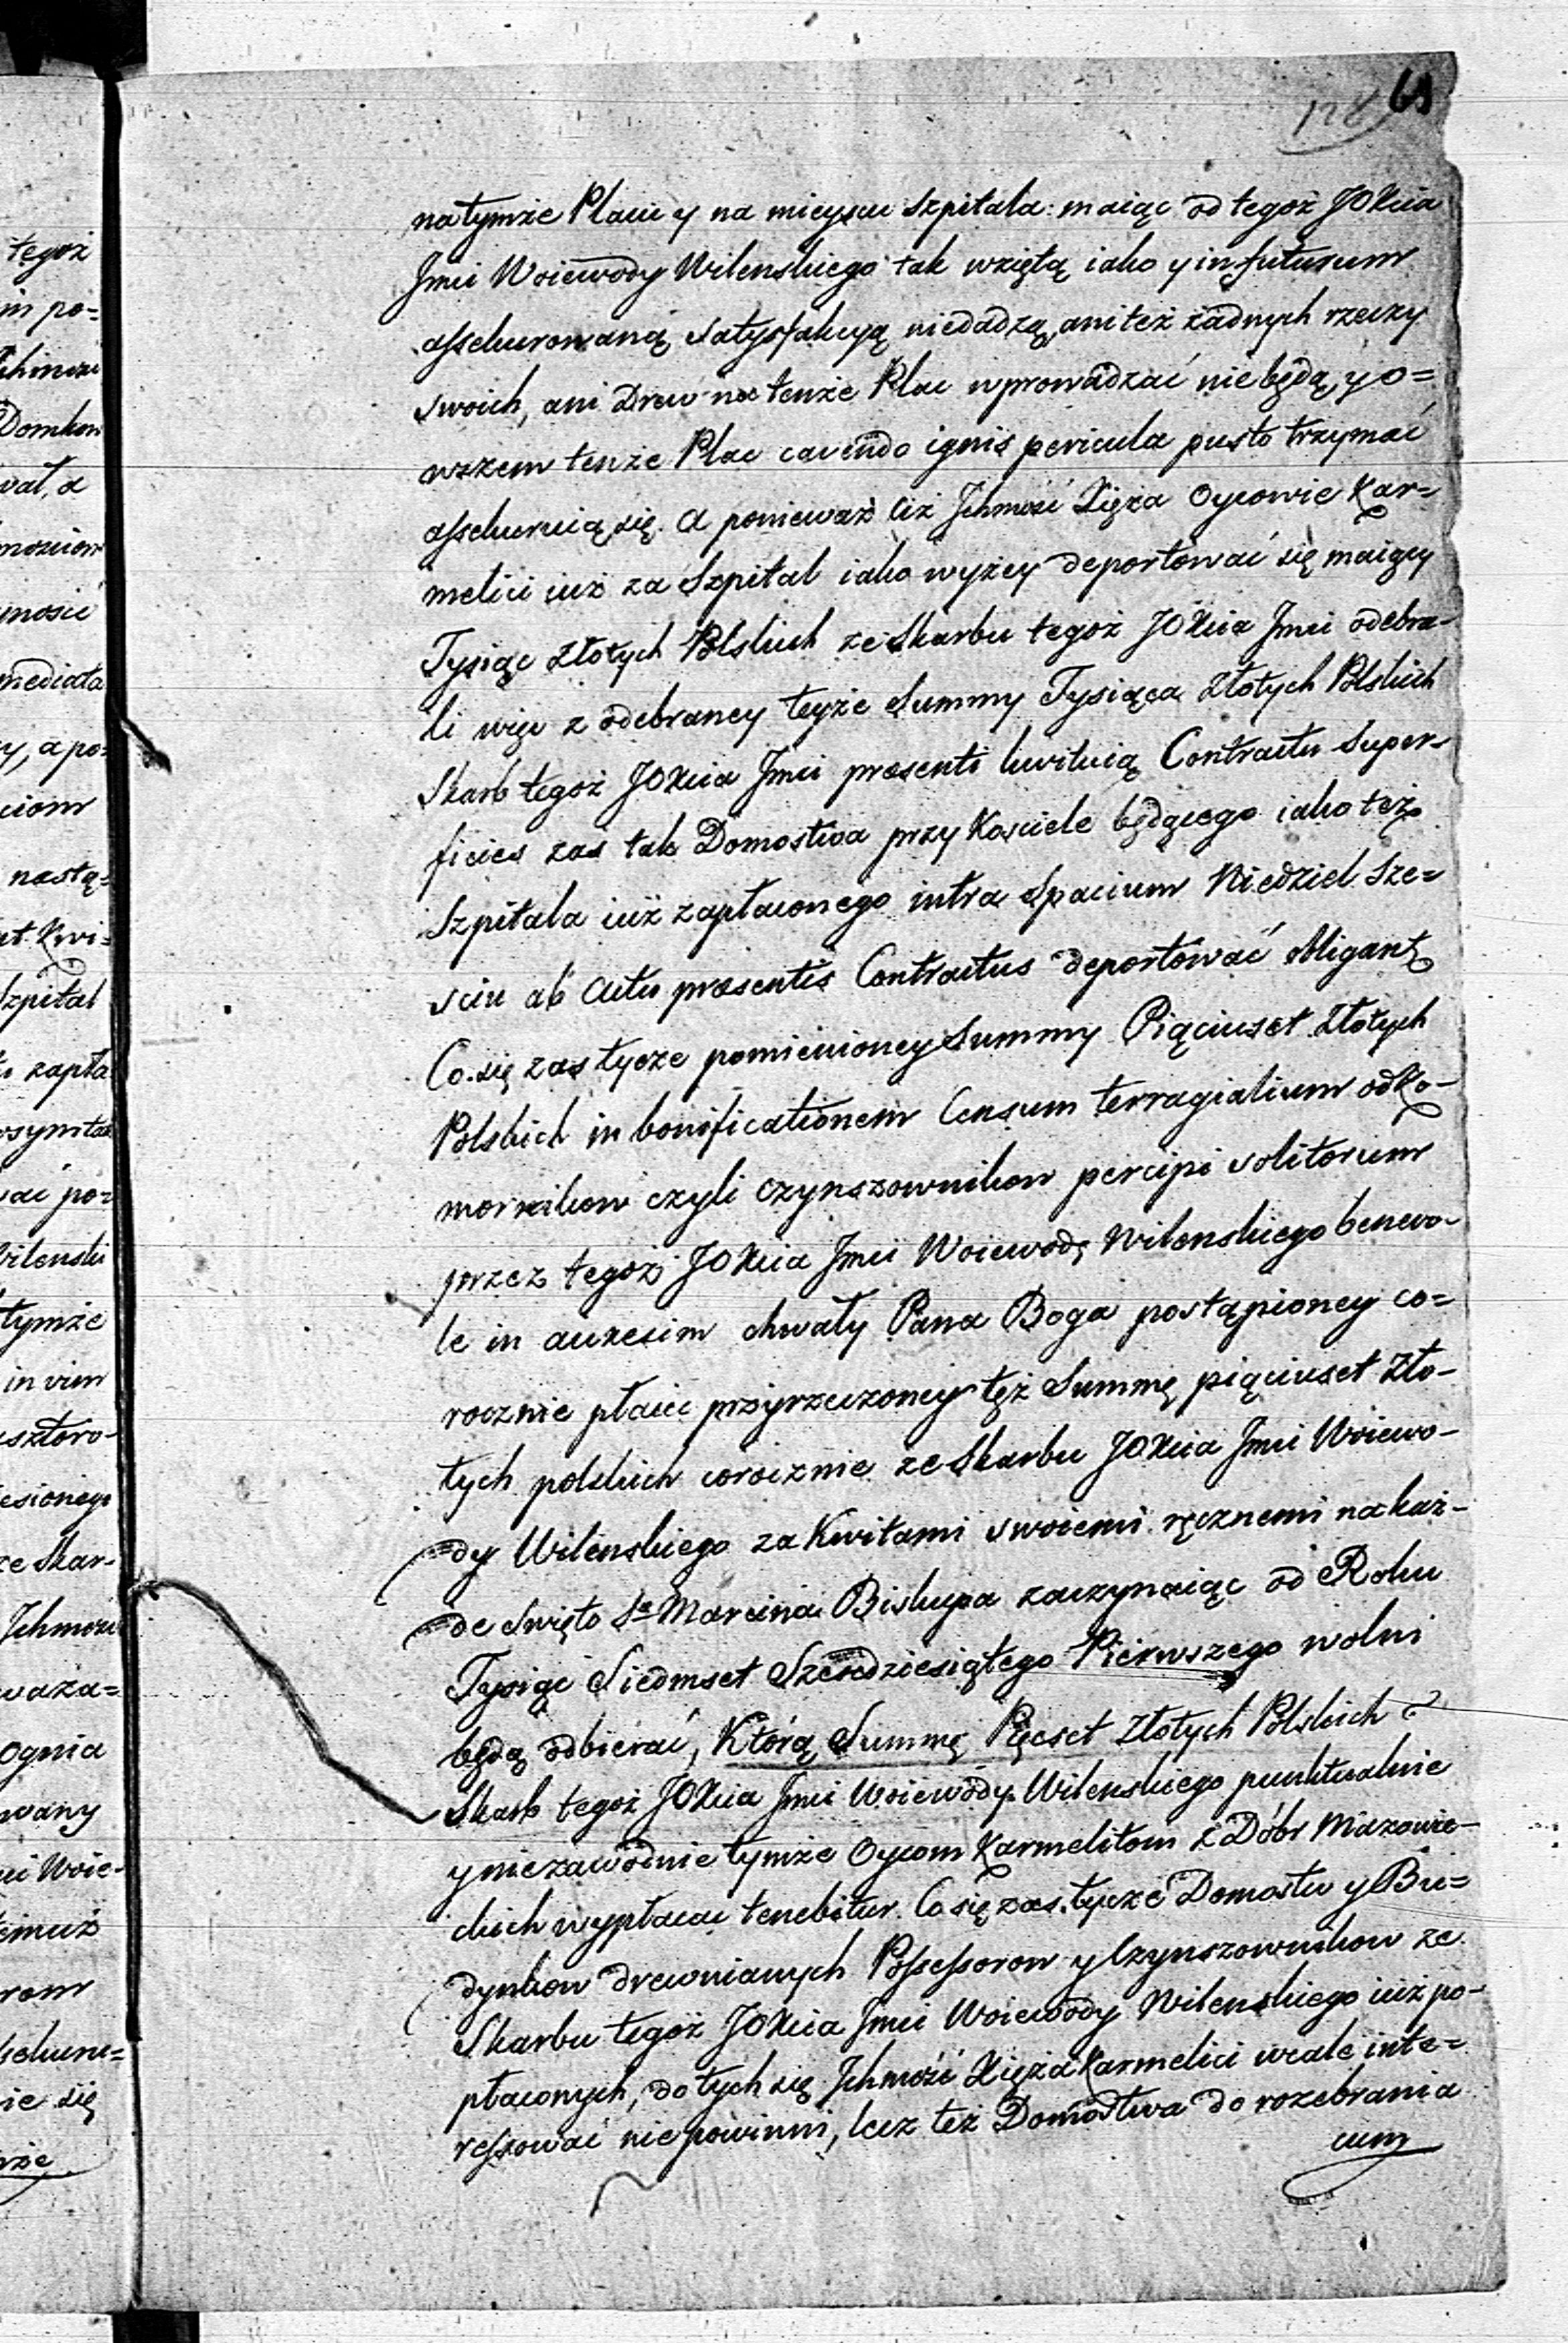 128 61
na tymże Placu y na mieyscu Szpitala: maiąc od tegoż JOXcia
Jmci Woiewody Wilenskiego tak wziętą iako y in futurum
assekurowaną satysfakcyą niedadzą, ani też żadnych rzeczy
swoich, ani Drew na tenże Plac wprowadzać niebędą, y o=
wszem tenże Plac cavendo ignis pericula pusto trzymać
assekuruią się. A ponieważ ciż Jchmość Xięża Oycowie Kar=
melici iuż za Szpital iako wyżey deportować się maiący
Tysiąc Złotych Polskich ze Skarbu tegoż JOXcia Jmci odebra-
li więc z odebraney teyże Summy Tysiąca Złotych Polskich
Skarb tegoż JOXcia Jmci præsenti kwituią Contractu Super-
ficies zas tak Domostwa przy Kosciele będącego iako też
Szpitala iuż zapłaconego intra Spacium Niedziel Sze=
sciu ab Actu præsentis Contractus deportować obligant
Co się zas tycze pomienioney Summy Pięciuset Złotych
Polskich in bonificationem Censum terragialium od Ko-
mornikow czyli czynszownikow percipi solitorum
przez tegoż JOXcia Jmci Woiewodę Wilenskiego benevo-
le in auxesim chwały Pana Boga postąpioney co=
rocznie płacic przyrzeczoney też Summę pięciuset Zło-
tych polskich corocznie ze Skarbu JOXcia Jmci Woiewo-
dy Wilenskiego za Kwitami swoiemi ręcznemi na każ-
de Swięto Sº Marcina Biskupa zaczynaiąc od Roku
Tysiąc Siedmset Szescdziesiątego Pierwszego wolni
będą odbierać, Którą Summę Pięcset Złotych Polskich
Skarb tegoż JOXcia Jmci Woiewody Wilenskiego punktualnie
y niezawodnie tymże Oycom Karmelitom z Dóbr Mazowie-
ckich wypłacac tenebitur. Co się zas tycze Domostw y Bu=
dynkow drewnianych Possessorow y Czynszownikow ze
Skarbu tegoż JOXcia Jmci Woiewody Wilenskiego iuż po-
płaconych, do tych się Jchmość Xięża Karmelici wcale inte=
ressować nie powinni, lecz też Domostwa do rozebrania
cum